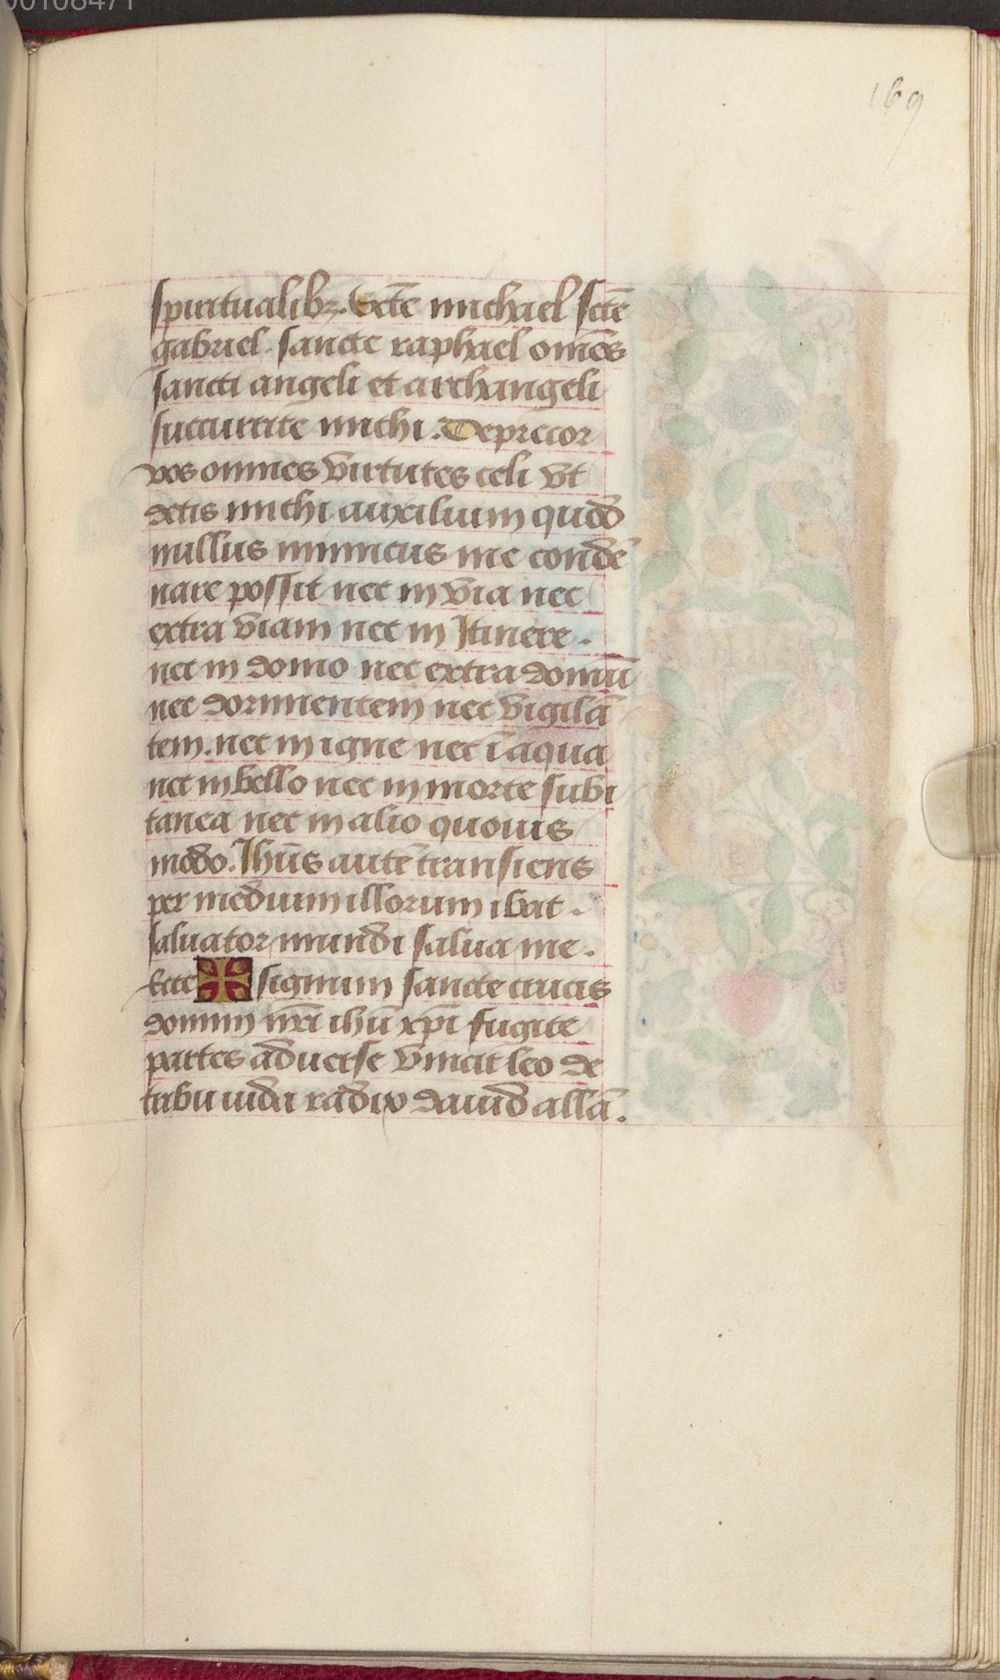 00108471
169
spiritualibꝫ. Scte michael scte
gabriel. sancte raphael omēs
sancti angeli et archangeli
succurrite michi. Deprecor
vos omnes virtutes celi vt
detis michi auxilium quod
nullus inimicus me conde
nare possit nec in via nec
extra viam nec in Itinere.
nec in domo nec extra domū
nec dormientem nec vigilā
tem. nec in igne nec ī aqua
nec in bello nec in morte subi
tanea nec in alio quouis
modo. Jhūs autē transiens
per medium illorum ibat.
saluator mundi salua me.
Ecce ✠ signum sancte crucis
domini nrī ihū xpī fugite
partes aduerse vincit leo de
tribu iuda radix dauid allā.